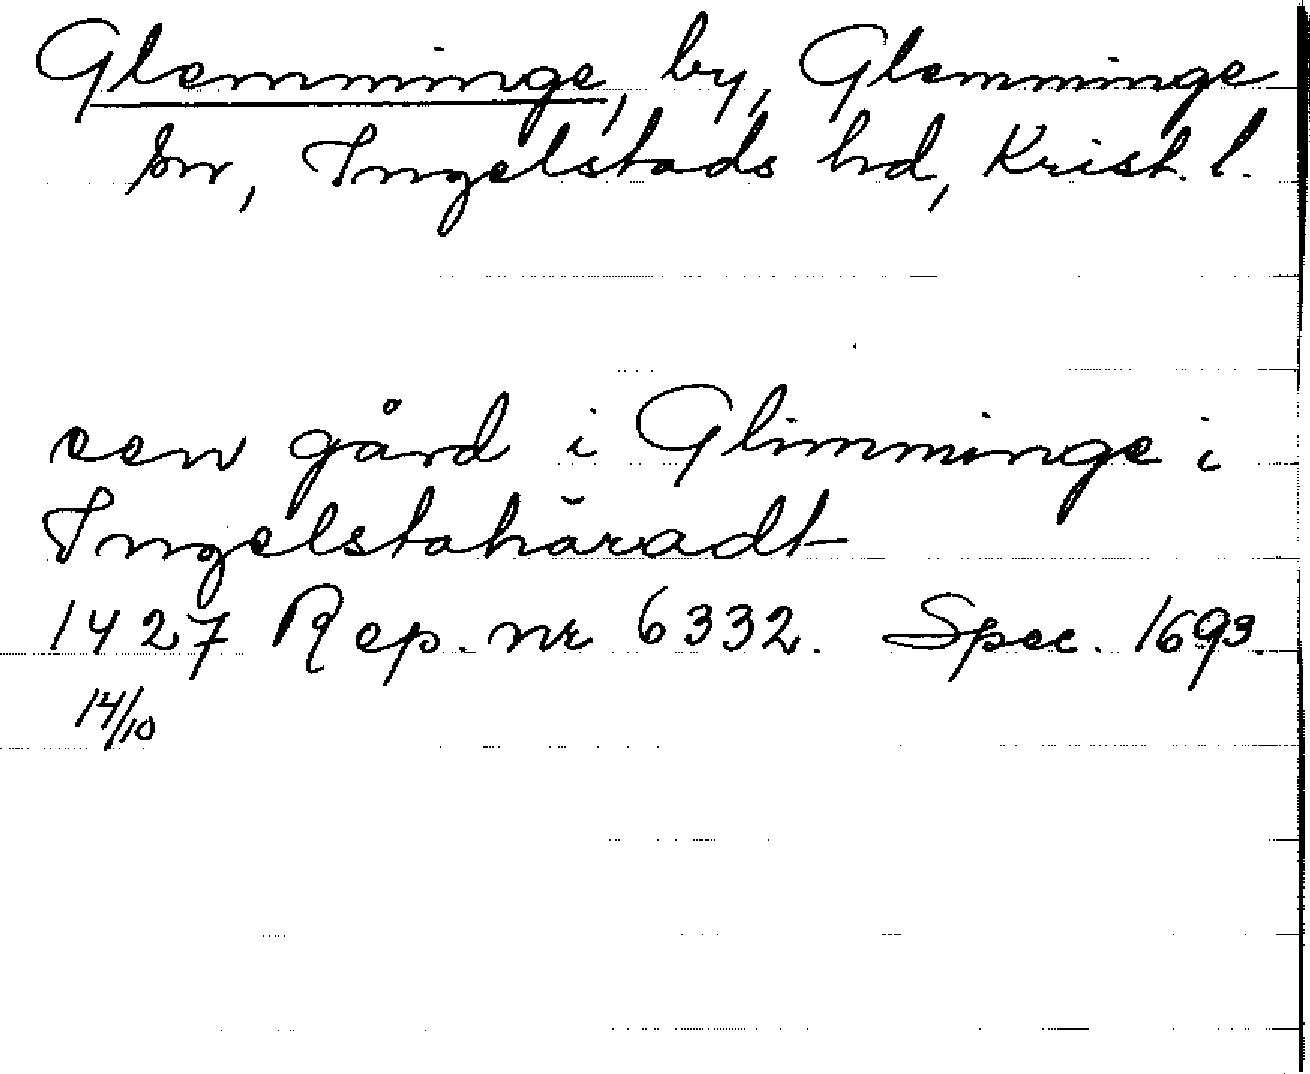 Glemminge, by, Glemminge
sn, Ingelstads hd, Krist. l.
een gård i Glimminge i
Ingelstahäradt
1427 Rep. nr 6332. Spec. 1693.
14/10